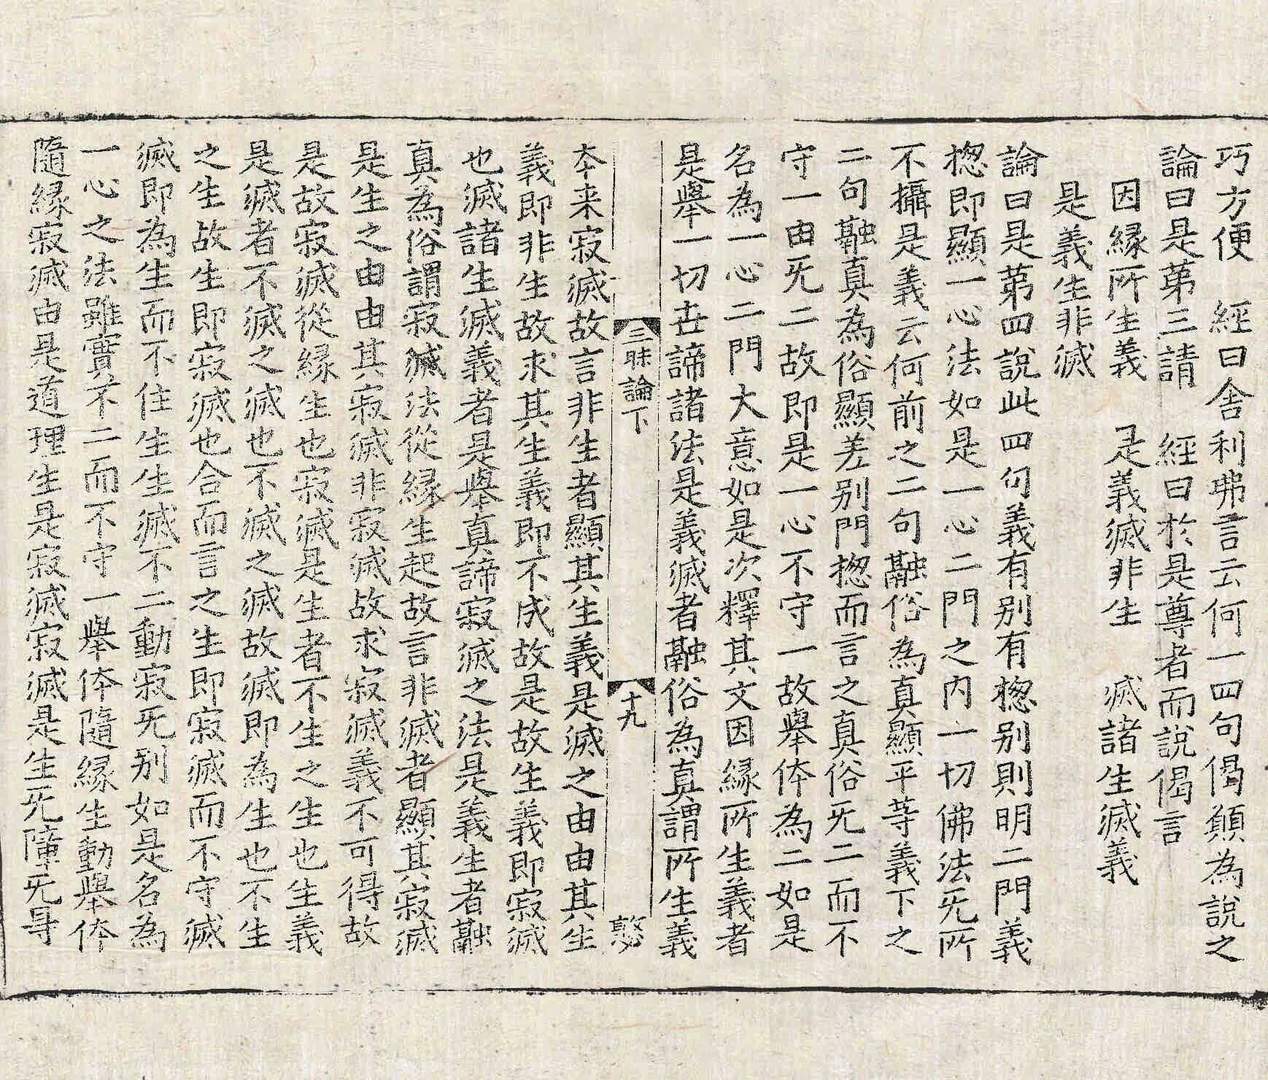 巧方便　經曰舍利弗言云何一四句偈願為說之
論曰是苐三請　經曰於是尊者而說偈言
因縁所生義　是義滅非生　滅諸生滅義
是義生非滅
論曰是苐四說此四句義有别有揔别則明二門義
揔即顯一心法如是一心二門之内一切佛法旡所
不攝是義云何前之二句融俗為真顯平等義下之
二句融真為俗顯差别門揔而言之真俗旡二而不
守一由旡二故即是一心不守一故舉体為二如是
名為一心二門大意如是次釋其文因縁所生義者
是舉一切世諦諸法是義滅者融俗為真謂所生義
三昧論下　十九
夲来寂滅故言非生者顯其生義是滅之由由其生
義即非生故求其生義即不成故是故生義即寂滅
也滅諸生滅義者是舉真諦寂滅之法是義生者融
真為俗謂寂滅法從縁生起故言非滅者顯其寂滅
是生之由由其寂滅非寂滅故求寂滅義不可得故
是故寂滅從縁生也寂滅是生者不生之生也生義
是滅者不滅之滅也不滅之滅故滅即為生也不生
之生故生即寂滅也合而言之生即寂滅而不守滅
滅即為生而不住生生滅不二動寂旡别如是名為
一心之法雖實不二而不守一舉体隨縁生動舉体
隨縁寂滅由是道理生是寂滅寂滅是生旡障旡㝵